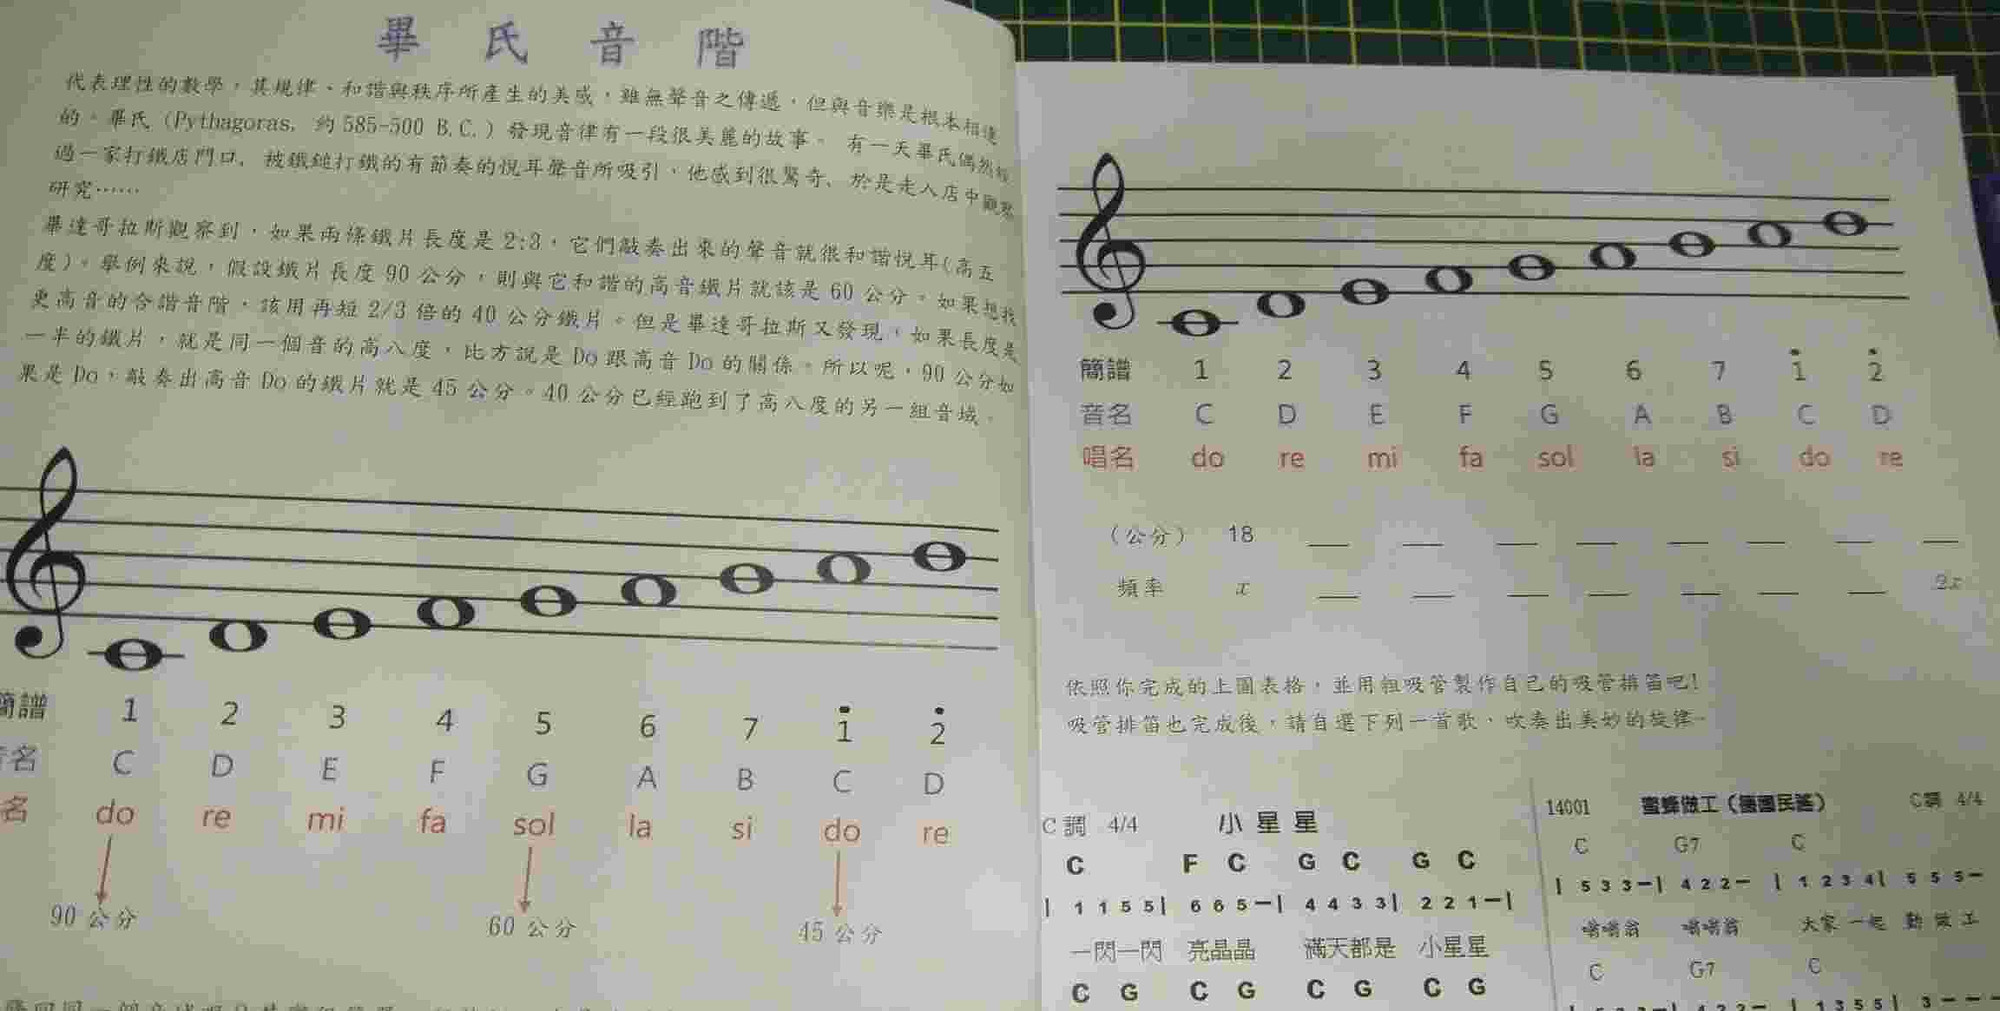 畢氏音階
代表理性的數學，其規律、和諧與秩序所產生的美感，雖無聲音之傳遞，但與音樂是根本相連
的。畢氏（Pythagoras, 約585-500 B.C.）發現音律有一段很美麗的故事。 有一天畢氏偶然經
過一家打鐵店門口，被鐵鎚打鐵的有節奏的悅耳聲音所吸引，他感到很驚奇，於是走入店中觀察
研究……
畢達哥拉斯觀察到，如果兩條鐵片長度是2:3，它們敲奏出來的聲音就很和諧悅耳(高五
度)。舉例來說，假設鐵片長度90公分，則與它和諧的高音鐵片就該是60公分。如果想找
更高音的合諧音階，該用再短2/3倍的40公分鐵片。但是畢達哥拉斯又發現，如果長度是
一半的鐵片，就是同一個音的高八度，比方說是Do跟高音Do的關係。所以呢，90公分如
果是Do，敲奏出高音Do的鐵片就是45公分。40公分已經跑到了高八度的另一組音域。
簡譜 1 2 3 4 5 6 7 1̇ 2̇
音名 C D E F G A B C D
名 do re mi fa sol la si do re
90公分 60公分 45公分
簡譜 1 2 3 4 5 6 7 1̇ 2̇
音名 C D E F G A B C D
唱名 do re mi fa sol la si do re
（公分） 18 __ __ __ __ __ __ __ __
頻率 x __ __ __ __ __ __ __ 2x
依照你完成的上圖表格，並用粗吸管製作自己的吸管排笛吧!
吸管排笛也完成後，請自選下列一首歌，吹奏出美妙的旋律。
C調 4/4 小星星
C F C G C G C
| 1 1 5 5| 6 6 5 —| 4 4 3 3| 2 2 1 —|
一閃一閃 亮晶晶 滿天都是 小星星
C G C G C G C G
14001 蜜蜂做工（德國民謠） C調 4/4
C G7 C
| 5 3 3 —| 4 2 2 — | 1 2 3 4| 5 5 5 —
嗡嗡嗡 嗡嗡嗡 大家一起 勤做工
C G7 C
| 5 3 3 —| 4 2 2 — | 1 3 5 5| 3 — — —